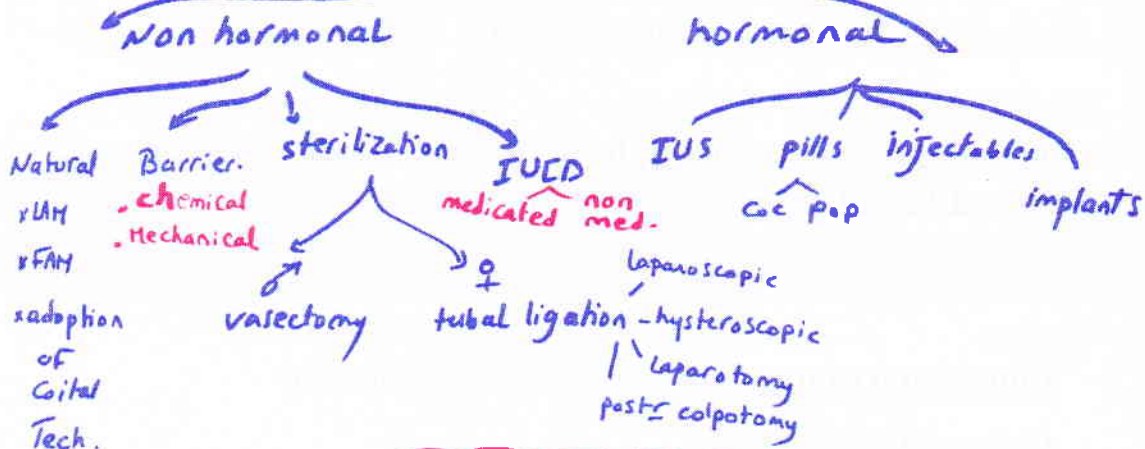 Non hormonal
hormonal
Natural
x LAM
x FAM
x adoption
of
Coital
Tech.
Barrier.
. chemical
. Mechanical
sterilization
♂
vasectomy
♀
tubal ligation
laparoscopic
- hysteroscopic
Laparotomy
postr colpotomy
IUCD
medicated non
med.
IUS
pills
COC POP
injectables
implants